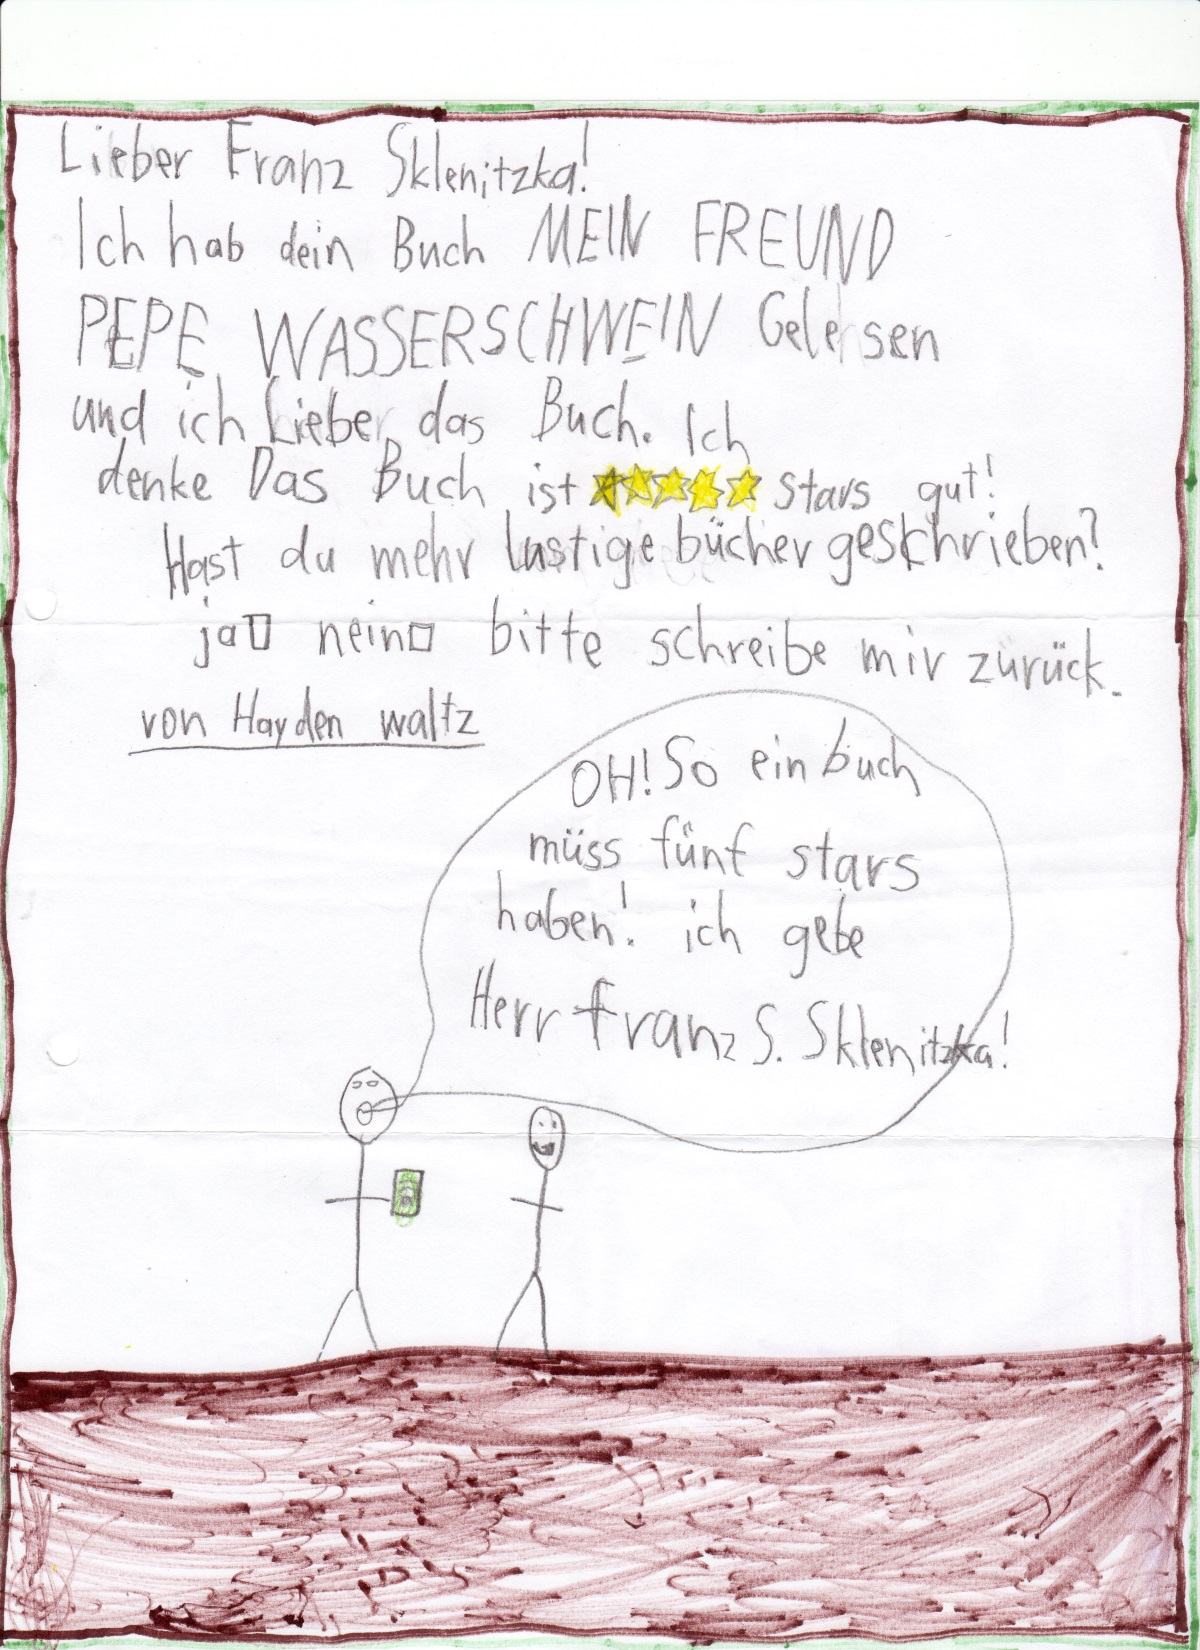 Lieber Franz Sklenitzka!
Ich hab dein Buch MEIN FREUND
PEPE WASSERSCHWEIN Gelesen
und ich Lieber das Buch. Ich
denke Das Buch ist ★★★★★ stars gut!
Hast du mehr lustige bücher geschrieben?
ja☐ nein☐ bitte schreibe mir zürück.
von Hayden waltz
OH! So ein buch
müss fünf stars
haben! ich gebe
Herr franz S. Sklenitzka!